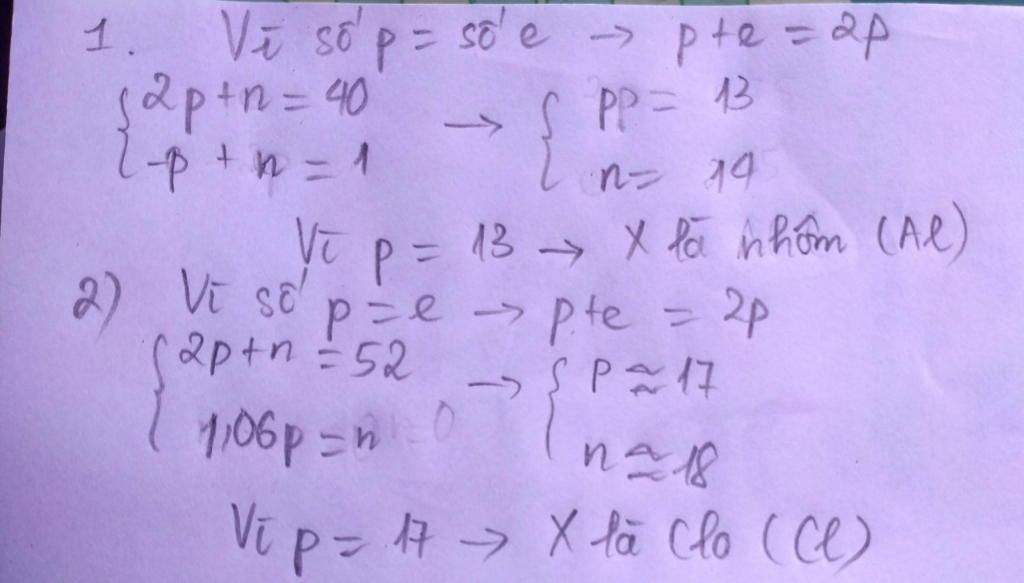 1. Vì số p = số e → p+e = 2p
{2p+n = 40 → { pp = 13
{-p + n = 1 { n = 14
Vì p = 13 → X là nhôm (Al)
2) Vì số p = e → p+e = 2p
{2p+n = 52 → { p ≈ 17
{1,06p = n { n ≈ 18
Vì p = 17 → X là Clo (Cl)